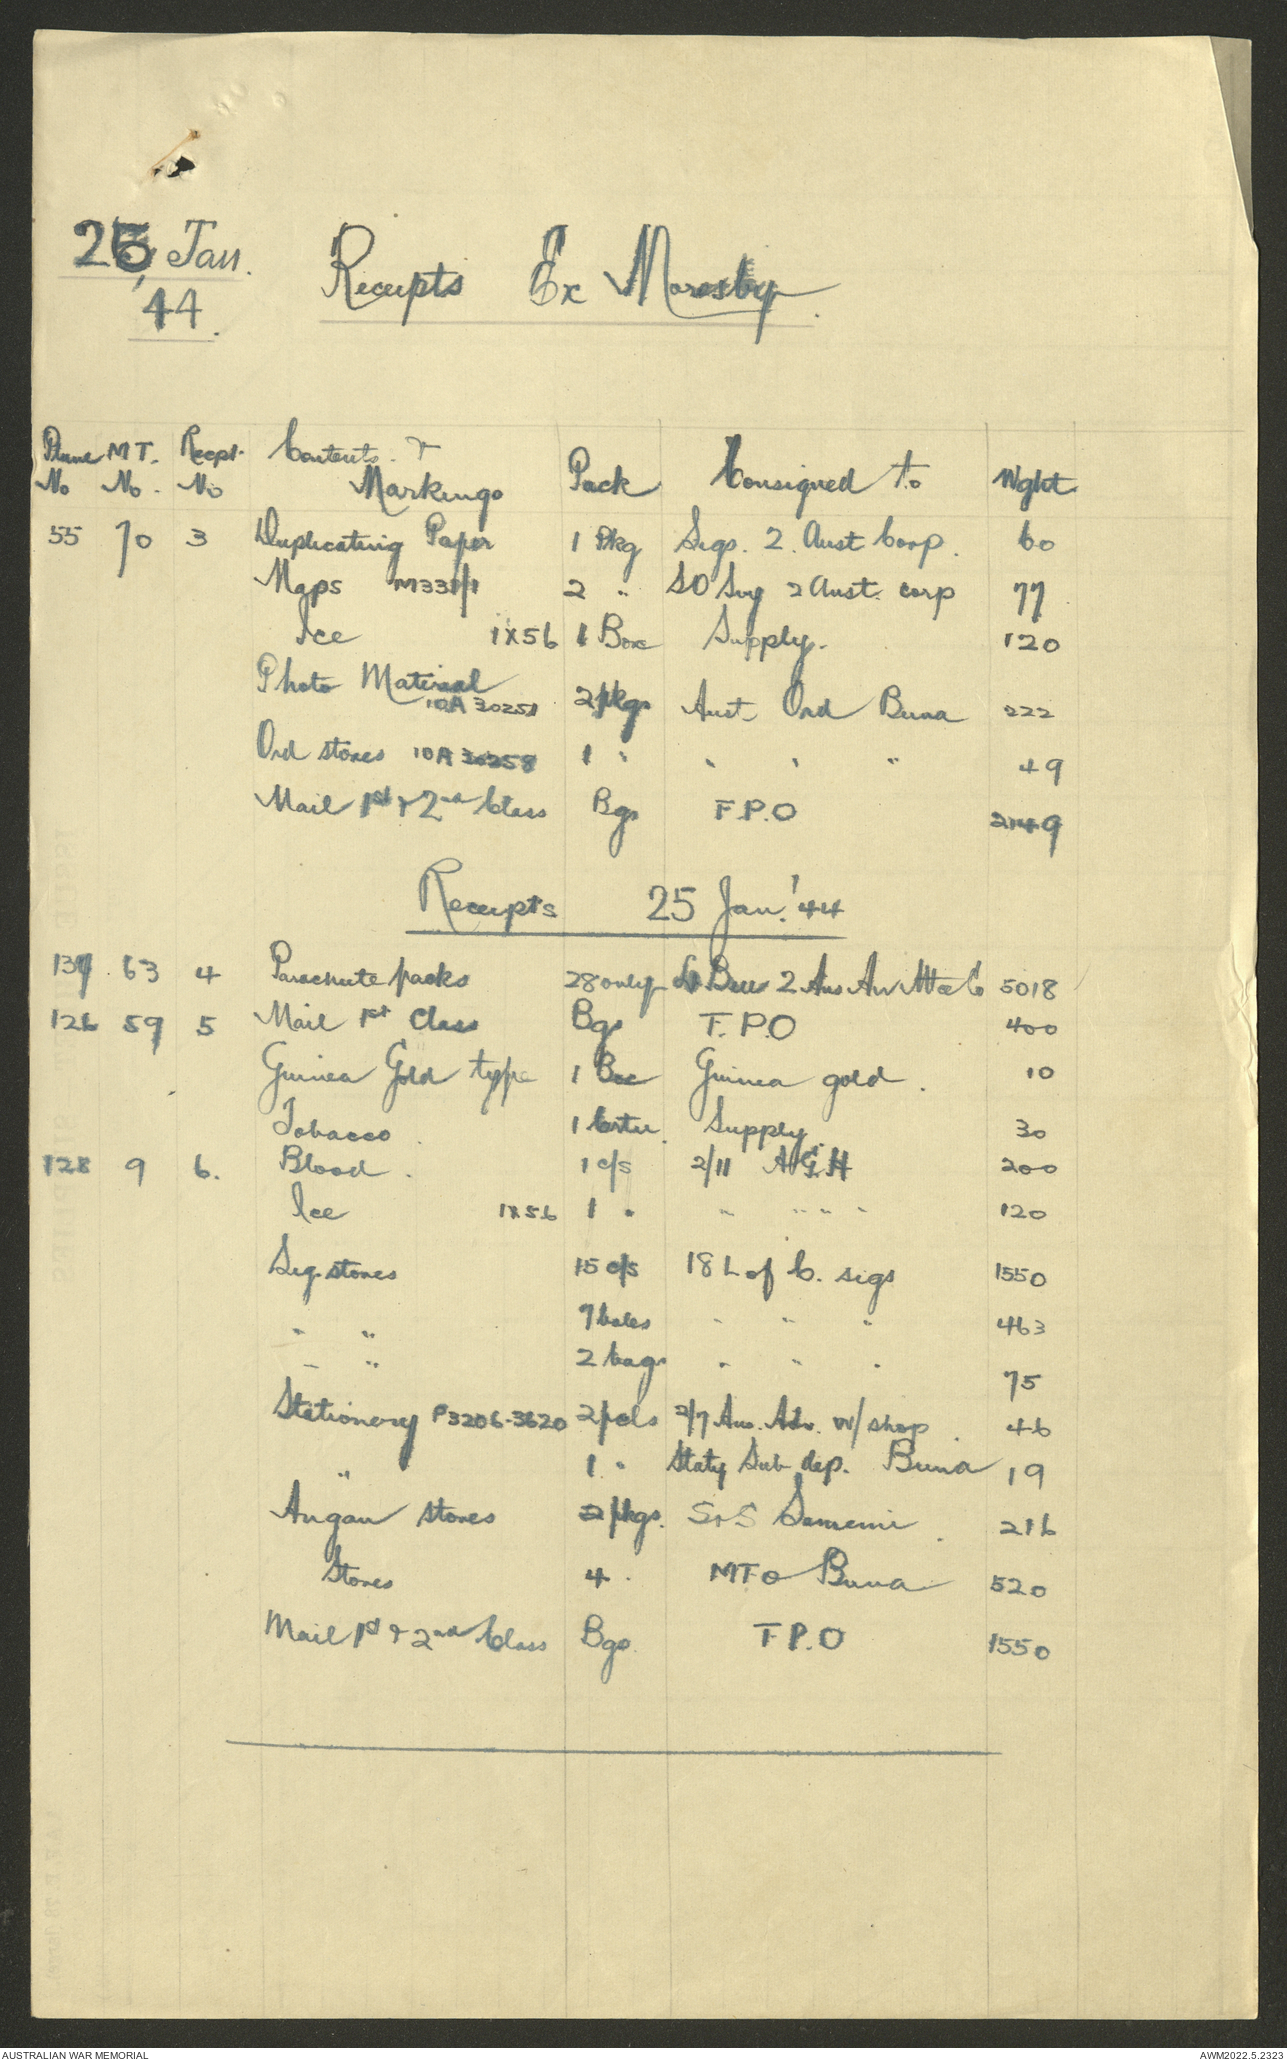 25 Jan. Receipts Ex Moresby.
44.
Plane MT. Recpt. Contents &
No No. No Markings Pack Consigned to Wght
55 70 3 Duplicating Paper 1 Pkg Sigs. 2. Aust Corp. 60
Maps 2 " SO Svy 2 Aust. corp 77
Ice 1x56 1 Box Supply. 120
Photo Material
10A 30251 2 pkgs Aust Ord Buna 222
Ord stores 10A 30258 1 " " " " 49
Mail 1st & 2nd Class Bgs F.P.O 2149
Receipts 25 Jan. '44
137 63 4 Parachute packs 28 only 2 Aus Air Mtce Co 5018
126 59 5 Mail 1st Class Bgs F.P.O 400
Guinea Gold type 1 Box Guinea gold. 10
Tobacco. 1 Cartn. Supply. 30
128 9 6. Blood. 1 c/s 2/11 A.G.H 200
Ice 1x56 1 " " " " " 120
Sig. stores 15 c/s 18 L of C. sigs 1550
" " 7 bales " " " 463
" " 2 bags " " " 75
Stationery P3206-3620 2 pcls 2/7 Aus. Adv. w/shop. 46
" 1 " Staty Sub dep. Buna 19
Angau stores 2 pkgs. 216
Stores 4 " MTO Buna 520
Mail 1st & 2nd Class Bgs. F.P.O 1550
AUSTRALIAN WAR MEMORIAL AWM2022.5.2323